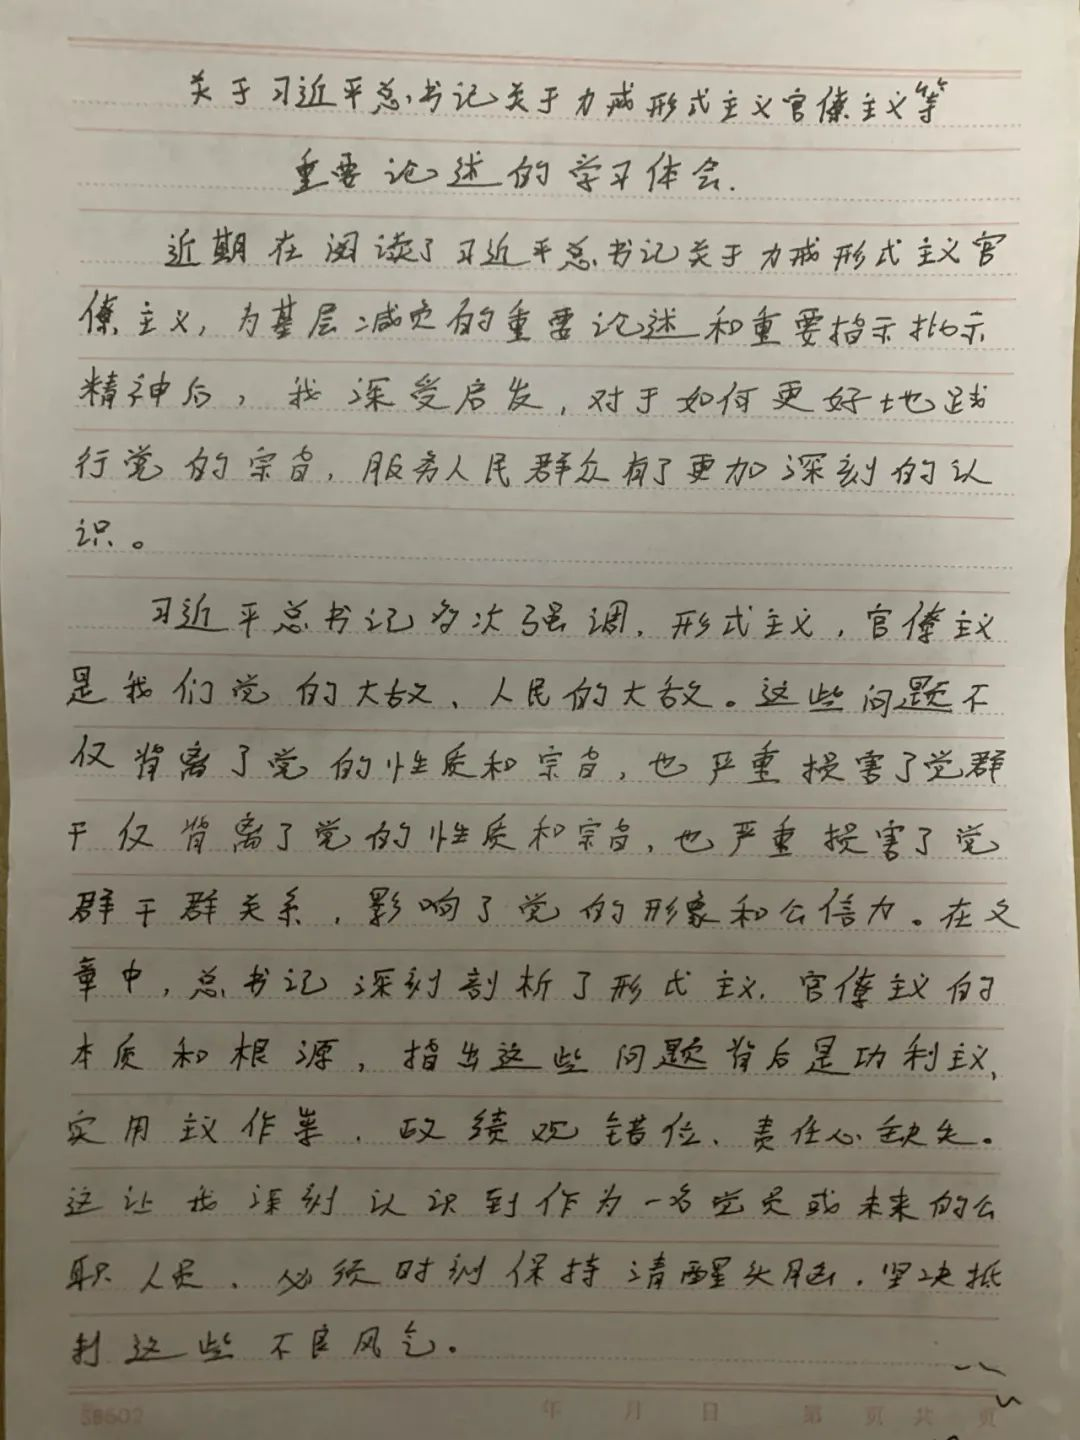 关于习近平总书记关于力戒形式主义官僚主义等
重要论述的学习体会.
近期在阅读了习近平总书记关于力戒形式主义官
僚主义，为基层减负的重要论述和重要指示批示
精神后，我深受启发，对于如何更好地践
行党的宗旨，服务人民群众有了更加深刻的认
识。
习近平总书记多次强调，形式主义，官僚主义
是我们党的大敌、人民的大敌。这些问题不
仅背离了党的性质和宗旨，也严重损害了党群
干仅背离了党的性质和宗旨，也严重损害了党
群干群关系，影响了党的形象和公信力。在文
章中，总书记深刻剖析了形式主义、官僚主义的
本质和根源，指出这些问题背后是功利主义、
实用主义作祟、政绩观错位、责任心缺失。
这让我深刻认识到作为一名党员或未来的公
职人员、必须时刻保持清醒头脑，坚决抵
制这些不良风气。
58602 年 月 日 第 页 共 页